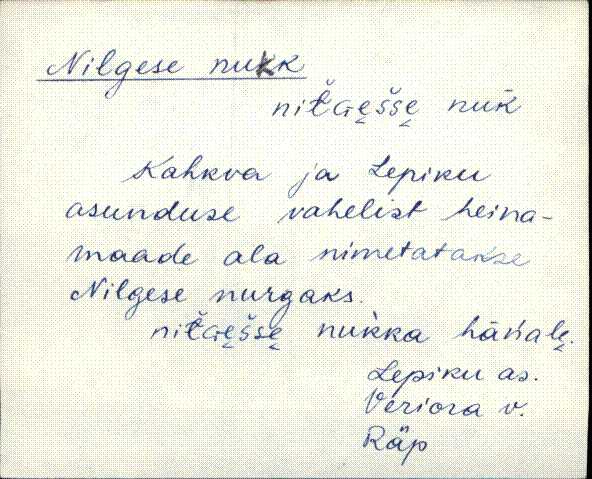 Nilgese nukk
nuk̄
Kahkva ja Lepiku
asunduse vahelist heina-
maade ala nimetatakse
Nilgese nurgaks.
nuk̀ka
Lepiku as.
Veriora v.
Räp